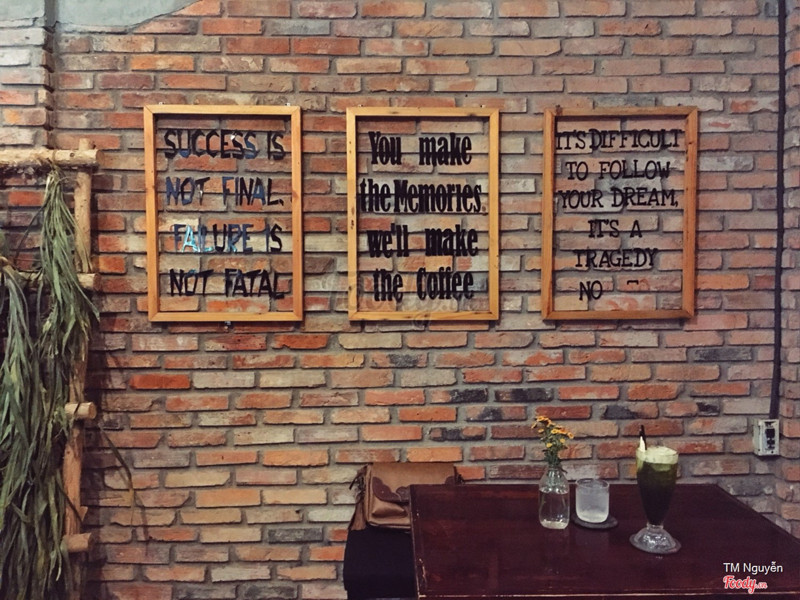 SUCCESS IS
NOT FINAL.
FAILURE IS
NOT FATAL
You make
the Memories
we'll make
the Coffee
IT'S DIFFICULT
TO FOLLOW
YOUR DREAM,
IT'S A
TRAGEDY
NO
TM Nguyễn
Foody.vn